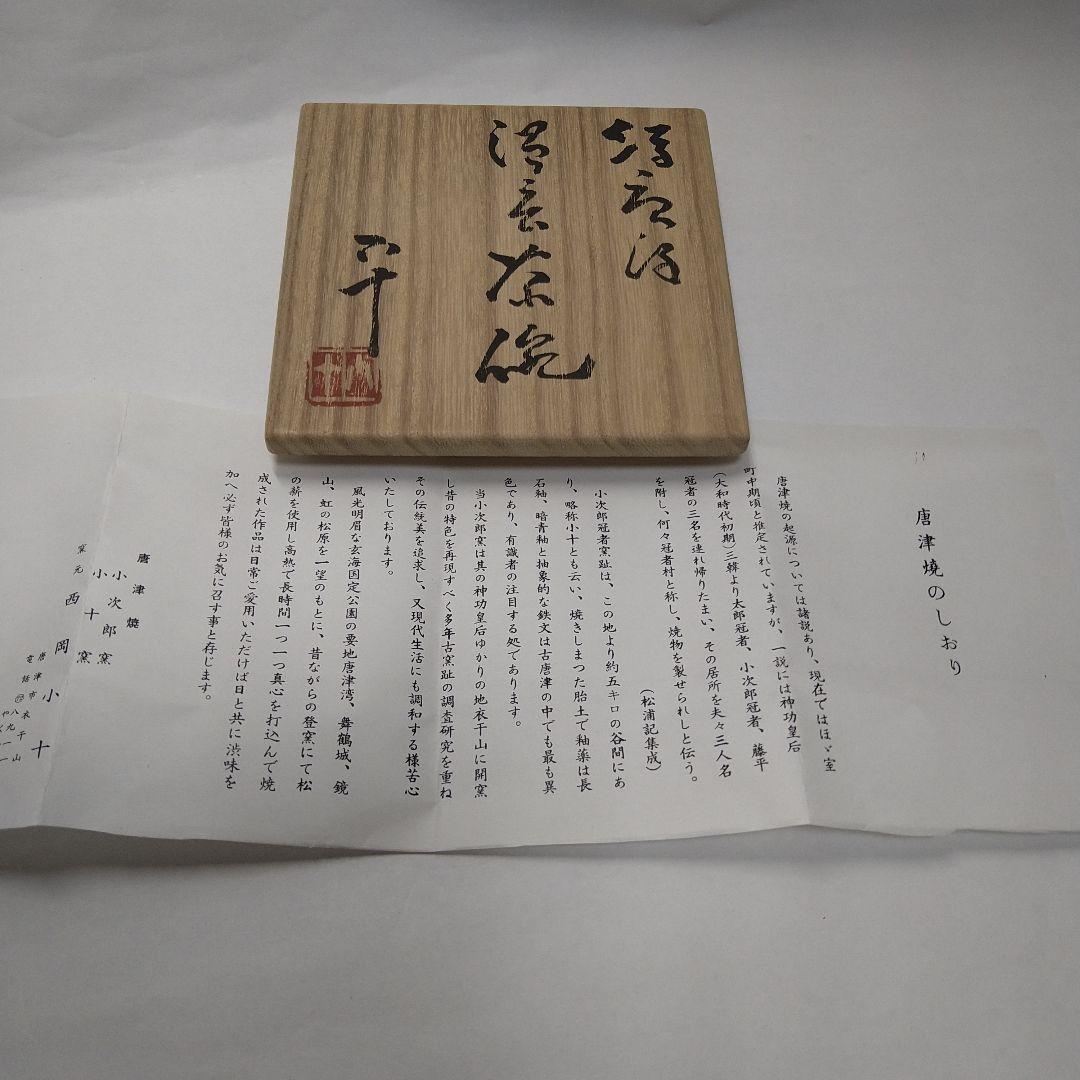 茶碗
小十
唐津燒のしおり
唐津焼の起源については諸説あり、現在ではほゞ室
町中期頃と推定されていますが、一説には神功皇后
(大和時代初期)三韓より太郎冠者、小次郎冠者、藤平
冠者の三名を連れ帰りたまい、その居所を夫々三人名
を附し、何々冠者村と称し、焼物を製せられしと伝う。
(松浦記集成)
小次郎冠者窯趾は、この地より約五キロの谷間にあ
り、略称小十とも云い、焼きしまつた胎土で釉薬は長
石釉、暗青釉と抽象的な鉄文は古唐津の中でも最も異
色であり、有識者の注目する処であります。
当小次郎窯は其の神功皇后ゆかりの地衣干山に開窯
し昔の特色を再現すべく多年古窯趾の調査研究を重ね
その伝統美を追求し、又現代生活にも調和する様苦心
いたしております。
風光明眉な玄海国定公園の要地唐津湾、舞鶴城、鏡
山、虹の松原を一望のもとに、昔ながらの登窯にて松
の薪を使用し高熱で長時間一つ一つ真心を打込んで焼
成された作品は日常ご愛用いただけば日と共に渋味を
加へ必ず皆様のお気に召す事と存じます。
唐津燒
小次郎窯
小十窯
窯元 西岡小十
唐津市衣干山
電話